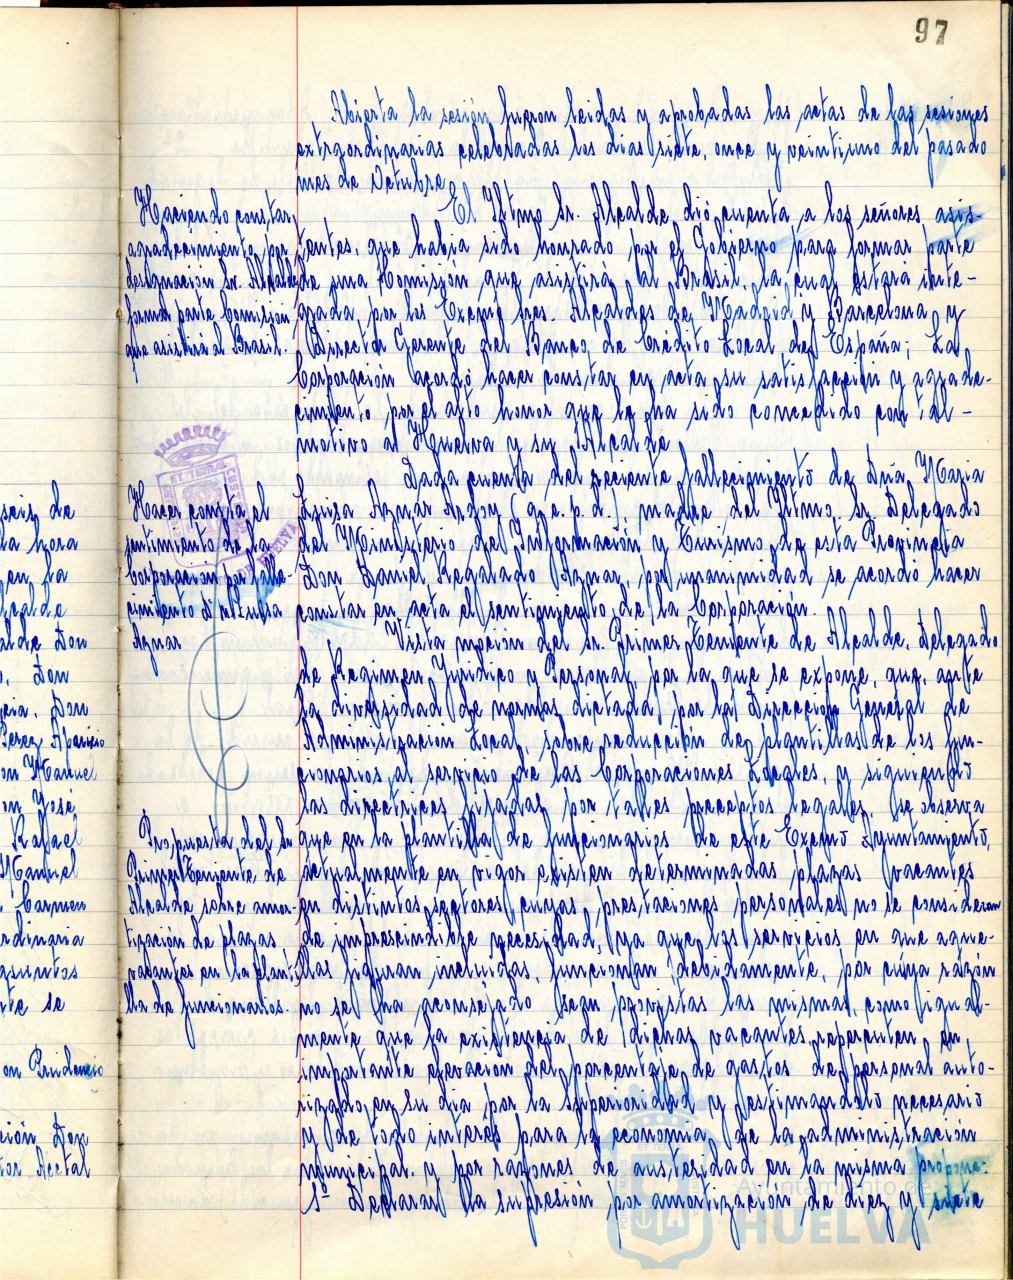 97
Abierta la sesión, fueron leidas y aprobadas las actas de las sesiones
extraordinarias celebradas los dias siete, once y veintiuno del pasado
mes de Octubre
El Iltmo Sr. Alcalde dió cuenta a los señores asis-
tentes, que habia sido honrado por el Gobierno para formar parte
de una Comisión que asistirá al Brasil, la cual estara inte-
grada, por los Excmos sres. Alcaldes de Madrid y Barcelona y
Director Gerente del Banco de Crédito Local de España; La
Corporación acordó hacer constar en acta su satisfacción y agrade-
cimiento, por el alto honor que le ha sido concedido con tal
motivo a Huelva y su Alcalde
Haciendo constar
agradecimiento por
designación Sr. Alcalde
formar parte Comision
que asistirá al Brasil.
Dada cuenta del reciente fallecimiento de Dña. Maria
Luisa Aznar Ardoy (q.e.p.d.) madre del Iltmo. Sr. Delegado
del Ministerio de Información y Turismo de esta Provincia
Don Daniel Regalado Aznar, por unanimidad se acordó hacer
constar en acta el sentimiento de la Corporación.
Hacer constar el
sentimiento de la
Corporacion por falle-
cimiento Dª Luisa
Aznar
Vista moción del sr. Primer Teniente de Alcalde, Delegado
de Regimen Juridico y Personal, por la que se expone, que ante
la diversidad de normas dictadas por la Dirección General de
Administración Local, sobre reducción de plantillas de los fun-
cionarios al servicio de las Corporaciones Locales, y siguiendo
las directrices fijadas por tales preceptos legales, se observa
que en la plantilla de funcionarios de este Excmo Ayuntamiento,
actualmente en vigor existen determinadas plazas vacantes
en distintos sectores, cuyas prestaciones personales no se consideran
de imprescindible necesidad, ya que los servicios en que aque-
llas figuran incluidas, funcionan debidamente, por cúya razón
no se ha aconsejado sean provistas las mismas, como igual-
mente que la existencia de dichas vacantes, repercuten en
importante elevación del porcentaje de gastos de personal auto-
rizado en su dia por la Superioridad y estimandolo necesario
y de todo interes para la economia de la administración
municipal y por razones de austeridad en la misma propone:
1º Declarar la supresión, por amortización, de diez y siete
Propuesta del Sr
Primer Teniente de
Alcalde sobre amor-
tización de plazas
vacantes en la planti-
lla de funcionarios.
seis de
la hora
en la
Alcalde
alde Don
Don
Don
Perez Aparicio
on Manuel
on José
Rafael
Manuel
Carmen
rdinaria
asuntos
rte se
on Prudencio
ción Don
tor Acetal
Ayuntamiento de
HUELVA